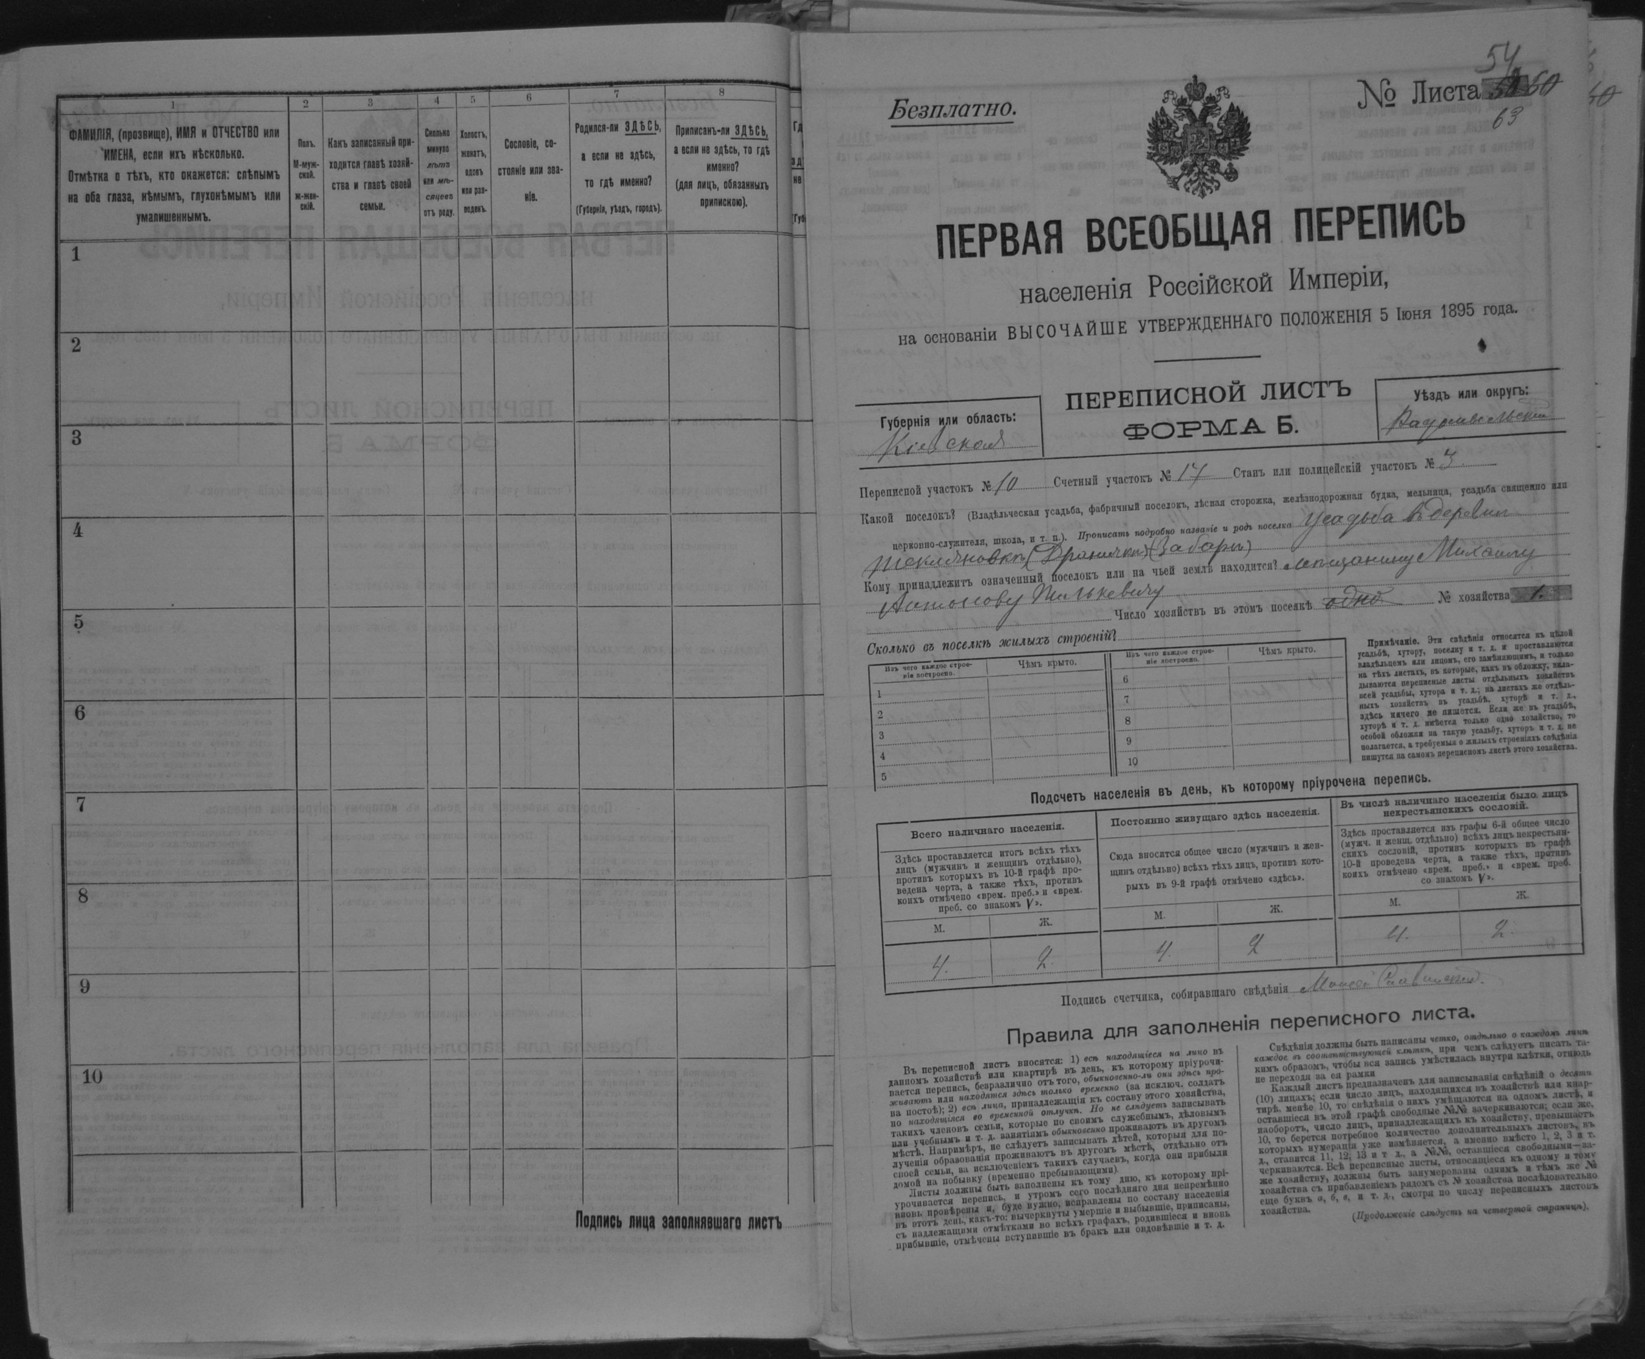 1
2
3
4
5
6
7
8
ФАМИЛІЯ, (прозвище), ИМЯ и ОТЧЕСТВО или
ИМЕНА, если ихъ нѣсколько.
Отмѣтка о тѣхъ, кто окажется: слѣпымъ
на оба глаза, нѣмымъ, глухонѣмымъ или
умалишеннымъ.
Полъ.
М-муж-
ской.
Ж-жен-
скій.
Какъ записанный при-
ходится главѣ хозяй-
ства и главѣ своей
семьи.
Сколько
минуло
лѣтъ
или мѣ-
сяцевъ
отъ роду.
Холостъ,
женатъ,
вдовъ
или раз-
веденъ.
Сословіе, со-
стояніе или зва-
ніе.
Родился-ли ЗДѢСЬ,
а если не здѣсь,
то гдѣ именно?
(Губернія, уѣздъ, городъ).
Приписанъ-ли ЗДѢСЬ,
а если не здѣсь, то гдѣ
именно?
(для лицъ, обязанныхъ
припискою).
1
2
3
4
5
6
7
8
9
10
Подпись лица заполнявшаго листъ
Безплатно.
54
№ Листа 60
63
ПЕРВАЯ ВСЕОБЩАЯ ПЕРЕПИСЬ
населенія Россійской Имперіи,
на основаніи ВЫСОЧАЙШЕ УТВЕРЖДЕННАГО ПОЛОЖЕНІЯ 5 Іюня 1895 года.
Губернія или область:
Кіевская
ПЕРЕПИСНОЙ ЛИСТЪ
ФОРМА Б.
Уѣздъ или округъ:
Переписной участокъ № 10 Счетный участокъ № 17 Станъ или полицейскій участокъ № 3
Какой поселокъ? (Владѣльческая усадьба, фабричный поселокъ, лѣсная сторожка, желѣзнодорожная будка, мельница, усадьба священно или
церковно-служителя, школа, и т. п.). Прописать подробно названіе и родъ поселка Усадьба въ деревни
Кому принадлежитъ означенный поселокъ или на чьей землѣ находится? мѣщанину Михаилу
Антонову
Число хозяйствъ въ этомъ поселкѣ одно № хозяйства 1.
Сколько въ поселкѣ жилыхъ строеній?
Изъ чего каждое строе-
ніе построено.
Чѣмъ крыто.
Изъ чего каждое строе-
ніе построено.
Чѣмъ крыто.
1
2
3
4
5
6
7
8
9
10
Примѣчаніе. Эти свѣдѣнія относятся къ цѣлой
усадьбѣ, хутору, поселку и т. д. и проставляются
владѣльцемъ или лицомъ, его замѣняющимъ, и только
на тѣхъ листахъ, въ которые, какъ въ обложку, вкла-
дываются переписные листы отдѣльныхъ хозяйствъ
всей усадьбы, хутора и т. д.; на листахъ же отдѣль-
ныхъ хозяйствъ въ усадьбѣ, хуторѣ и т. д.,
здѣсь ничего не пишется. Если же въ усадьбѣ,
хуторѣ и т. д. имѣется только одно хозяйство, то
особой обложки на такую усадьбу, хуторъ и т. д. не
полагается, а требуемыя о жилыхъ строеніяхъ свѣдѣнія
пишутся на самомъ переписномъ листѣ этого хозяйства.
Подсчетъ населенія въ день, къ которому пріурочена перепись.
Всего наличнаго населенія.
Здѣсь проставляется итогъ всѣхъ тѣхъ
лицъ (мужчинъ и женщинъ отдѣльно),
противъ которыхъ въ 10-й графѣ про-
ведена черта, а также тѣхъ, противъ
коихъ отмѣчено «врем. преб.» и «врем.
преб. со знакомъ V».
М.
Ж.
4.
2.
Постоянно живущаго здѣсь населенія.
Сюда вносится общее число (мужчинъ и жен-
щинъ отдѣльно) всѣхъ тѣхъ лицъ, противъ кото-
рыхъ въ 9-й графѣ отмѣчено «здѣсь».
М.
Ж.
4.
2
Въ числѣ наличнаго населенія было лицъ
некрестьянскихъ сословій.
Здѣсь проставляется изъ графы 6-й общее число
(мужч. и женщ. отдѣльно) всѣхъ лицъ некрестьян-
скихъ сословій, противъ которыхъ въ графѣ
10-й проведена черта, а также тѣхъ, противъ
коихъ отмѣчено «врем. преб.» и «врем. преб.
со знакомъ V».
М.
Ж.
4.
2.
Подпись счетчика, собиравшаго свѣдѣнія
Правила для заполненія переписного листа.
Въ переписной листъ вносятся: 1) всѣ находящіеся на лицо въ
данномъ хозяйствѣ или квартирѣ въ день, къ которому пріурочи-
вается перепись, безразлично отъ того, обыкновенно-ли они здѣсь про-
живаютъ или находятся здѣсь только временно (за исключ. солдатъ
на постоѣ); 2) всѣ лица, принадлежащія къ составу этого хозяйства,
но находящіяся во временной отлучкѣ. Но не слѣдуетъ записывать
такихъ членовъ семьи, которые по своимъ служебнымъ, дѣловымъ
или учебнымъ и т. д. занятіямъ обыкновенно проживаютъ въ другомъ
мѣстѣ. Напримѣръ, не слѣдуетъ записывать дѣтей, которыя для по-
лученія образованія проживаютъ въ другомъ мѣстѣ, отдѣльно отъ
своей семьи, за исключеніемъ такихъ случаевъ, когда они прибыли
домой на побывку (временно пребывающими).
Листы должны быть заполнены къ тому дню, къ которому прі-
урочивается перепись, и утромъ сего послѣдняго дня непремѣнно
вновь провѣрены и, буде нужно, исправлены по составу населенія
въ этотъ день, какъ-то: вычеркнуты умершіе и выбывшіе, приписаны,
съ надлежащими отмѣтками во всѣхъ графахъ, родившіеся и вновь
прибывшіе, отмѣчены вступившіе въ бракъ или овдовѣвшіе и т. д.
Свѣдѣнія должны быть написаны четко, отдѣльно о каждомъ лицѣ
каждое въ соотвѣтствующей клѣткѣ, при чемъ слѣдуетъ писать та-
кимъ образомъ, чтобы вся запись умѣстилась внутри клѣтки, отнюдь
не переходя за ея рамки
Каждый листъ предназначенъ для записыванія свѣдѣній о десяти
(10) лицахъ; если число лицъ, находящихся въ хозяйствѣ или квар-
тирѣ, менѣе 10, то свѣдѣнія о нихъ умѣщаются на одномъ листѣ, и
оставшіеся въ этой графѣ свободные №№ зачеркиваются; если же,
наоборотъ, число лицъ, принадлежащихъ къ хозяйству, превышаетъ
10, то берется потребное количество дополнительныхъ листовъ, въ
которыхъ нумерація уже измѣняется, а именно вмѣсто 1, 2, 3 и т.
д., ставится 11, 12, 13 и т. д., а №№, оставшіеся свободными—за-
черкиваются. Всѣ переписные листы, относящіеся къ одному и тому
же хозяйству, должны быть занумерованы однимъ и тѣмъ же №
хозяйства съ прибавленіемъ рядомъ съ № хозяйства послѣдовательно
еще буквъ а, б, в, и т. д., смотря по числу переписныхъ листовъ
хозяйства.
(Продолженіе слѣдуетъ на четвертой страницѣ).